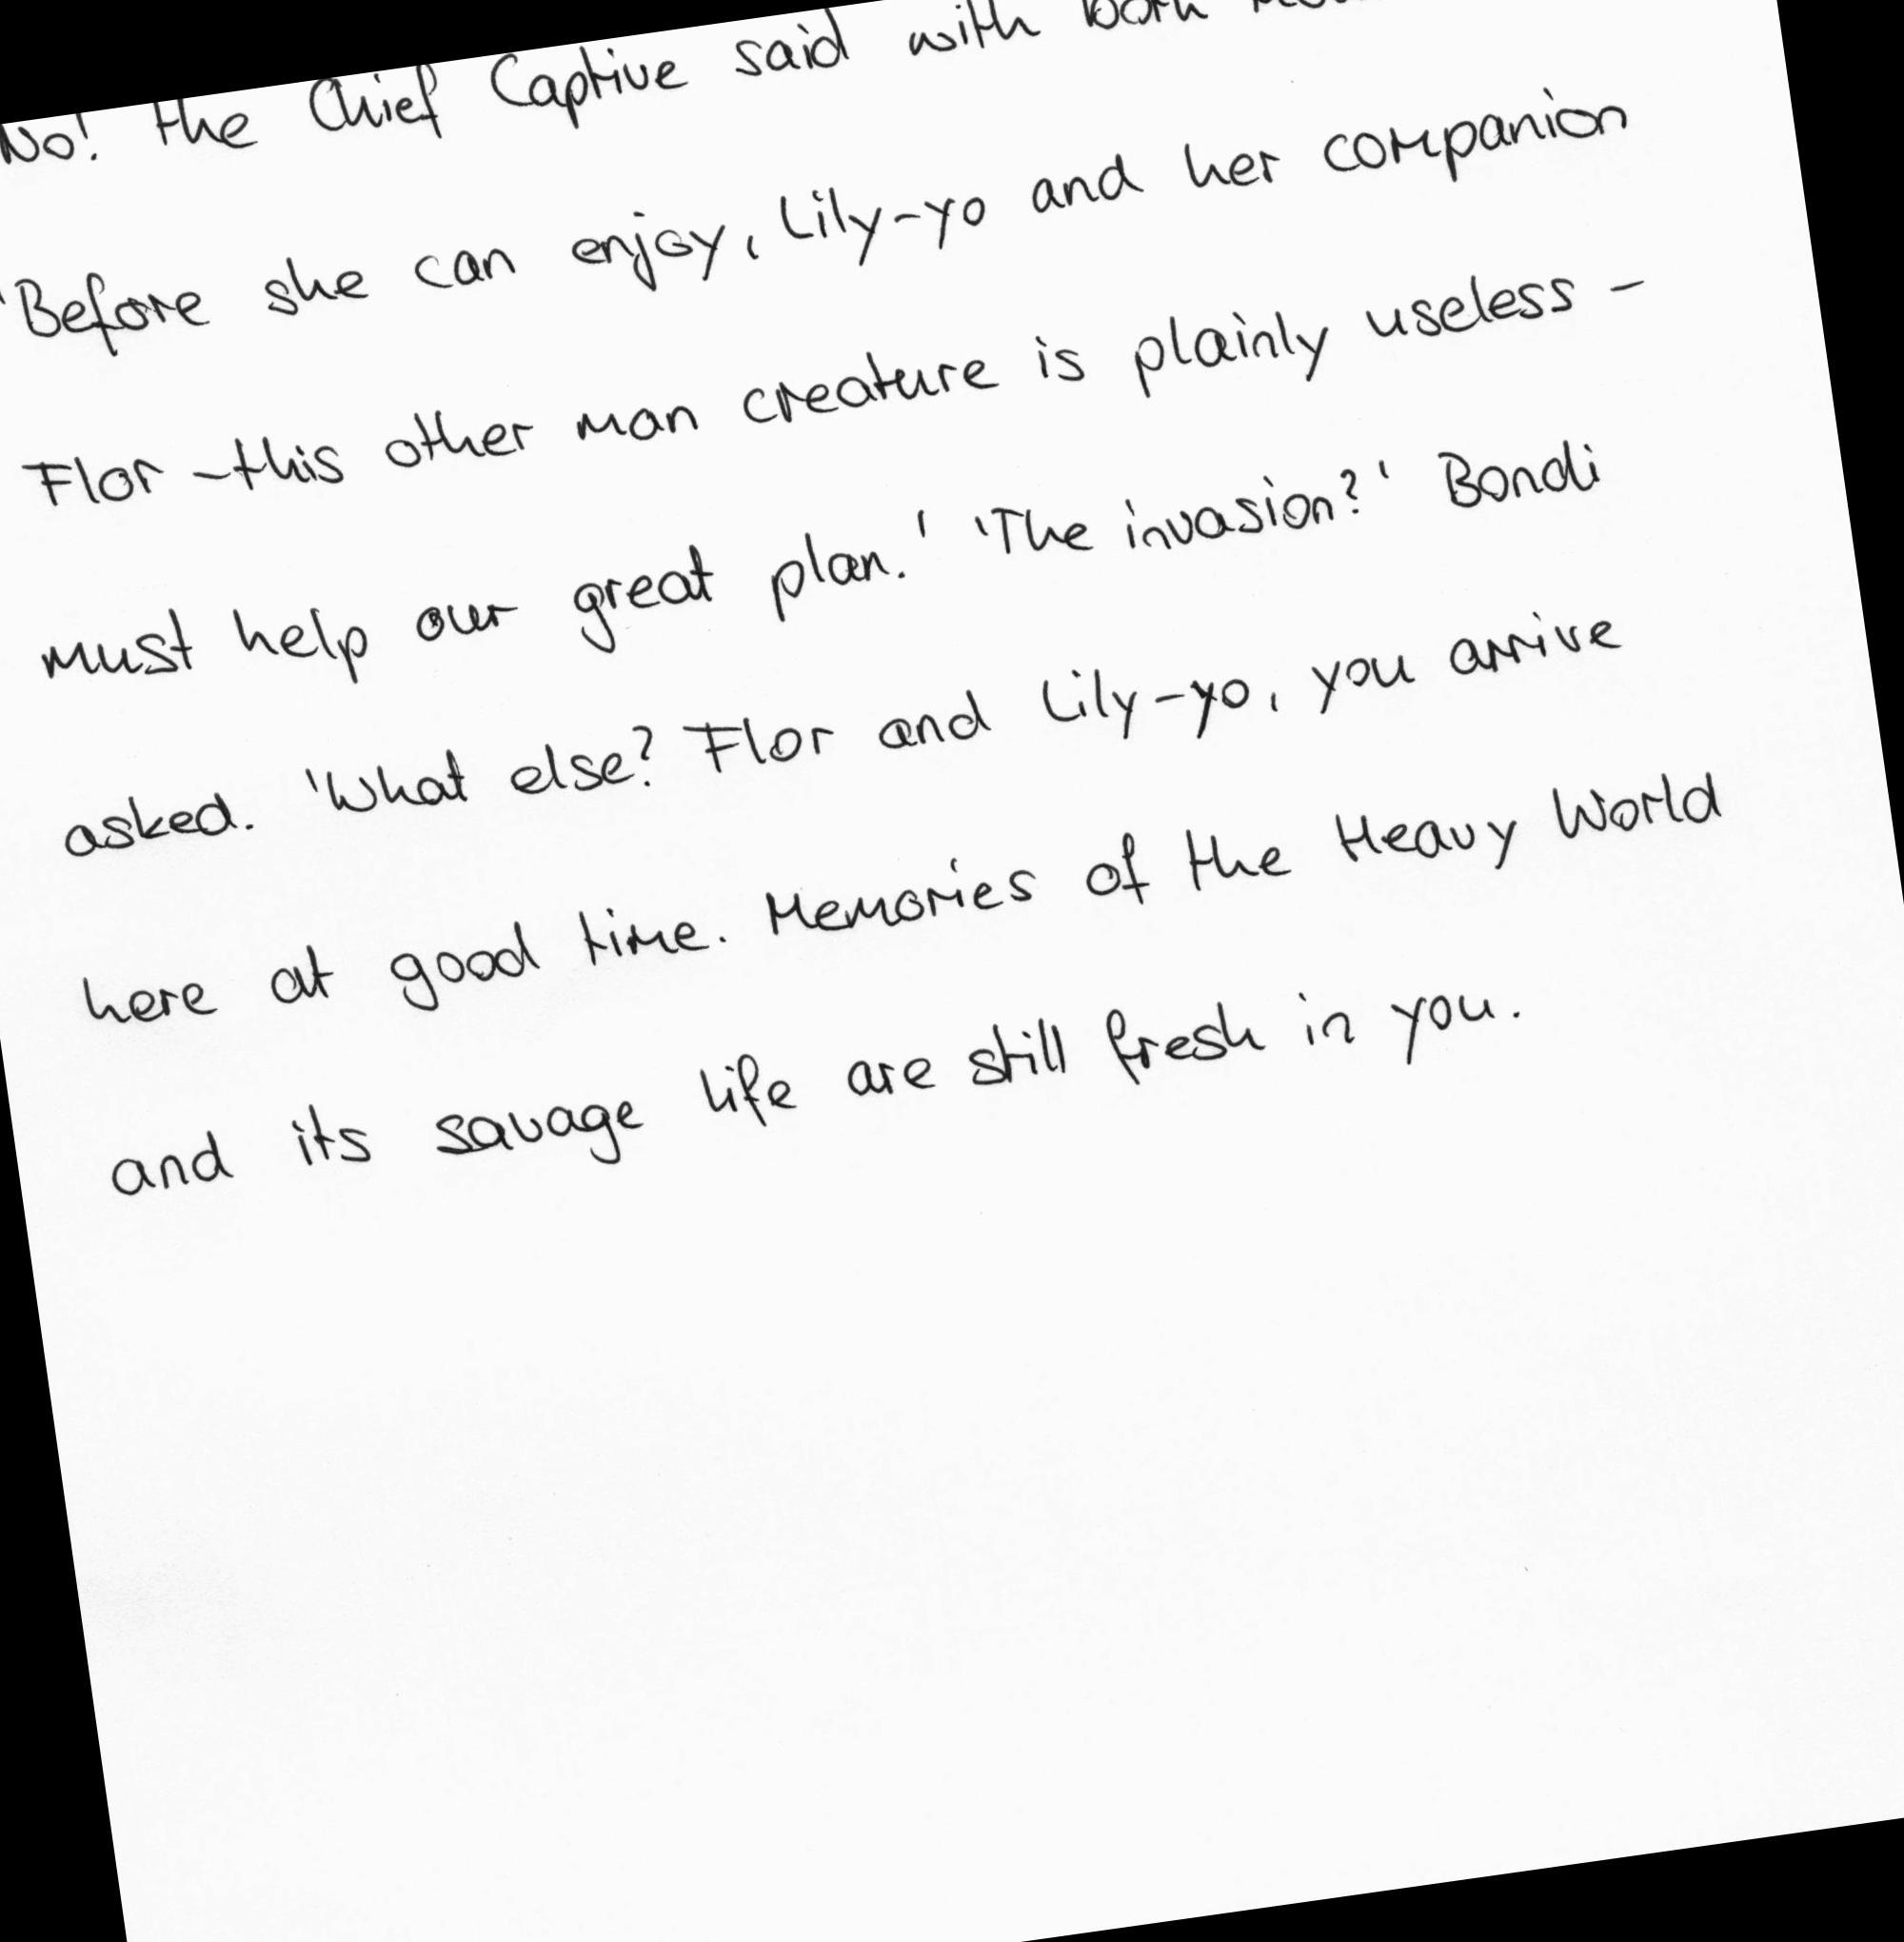 No! the Chief Captive said with both
'Before she can enjoy, Lily-yo and her companion
Flor - this other man creature is plainly useless -
must help our great plan.' 'The invasion?' Bondi
asked. 'What else? Flor and Lily-yo, you arrive
here at good time. Memories of the Heavy World
and its savage life are still fresh in you.